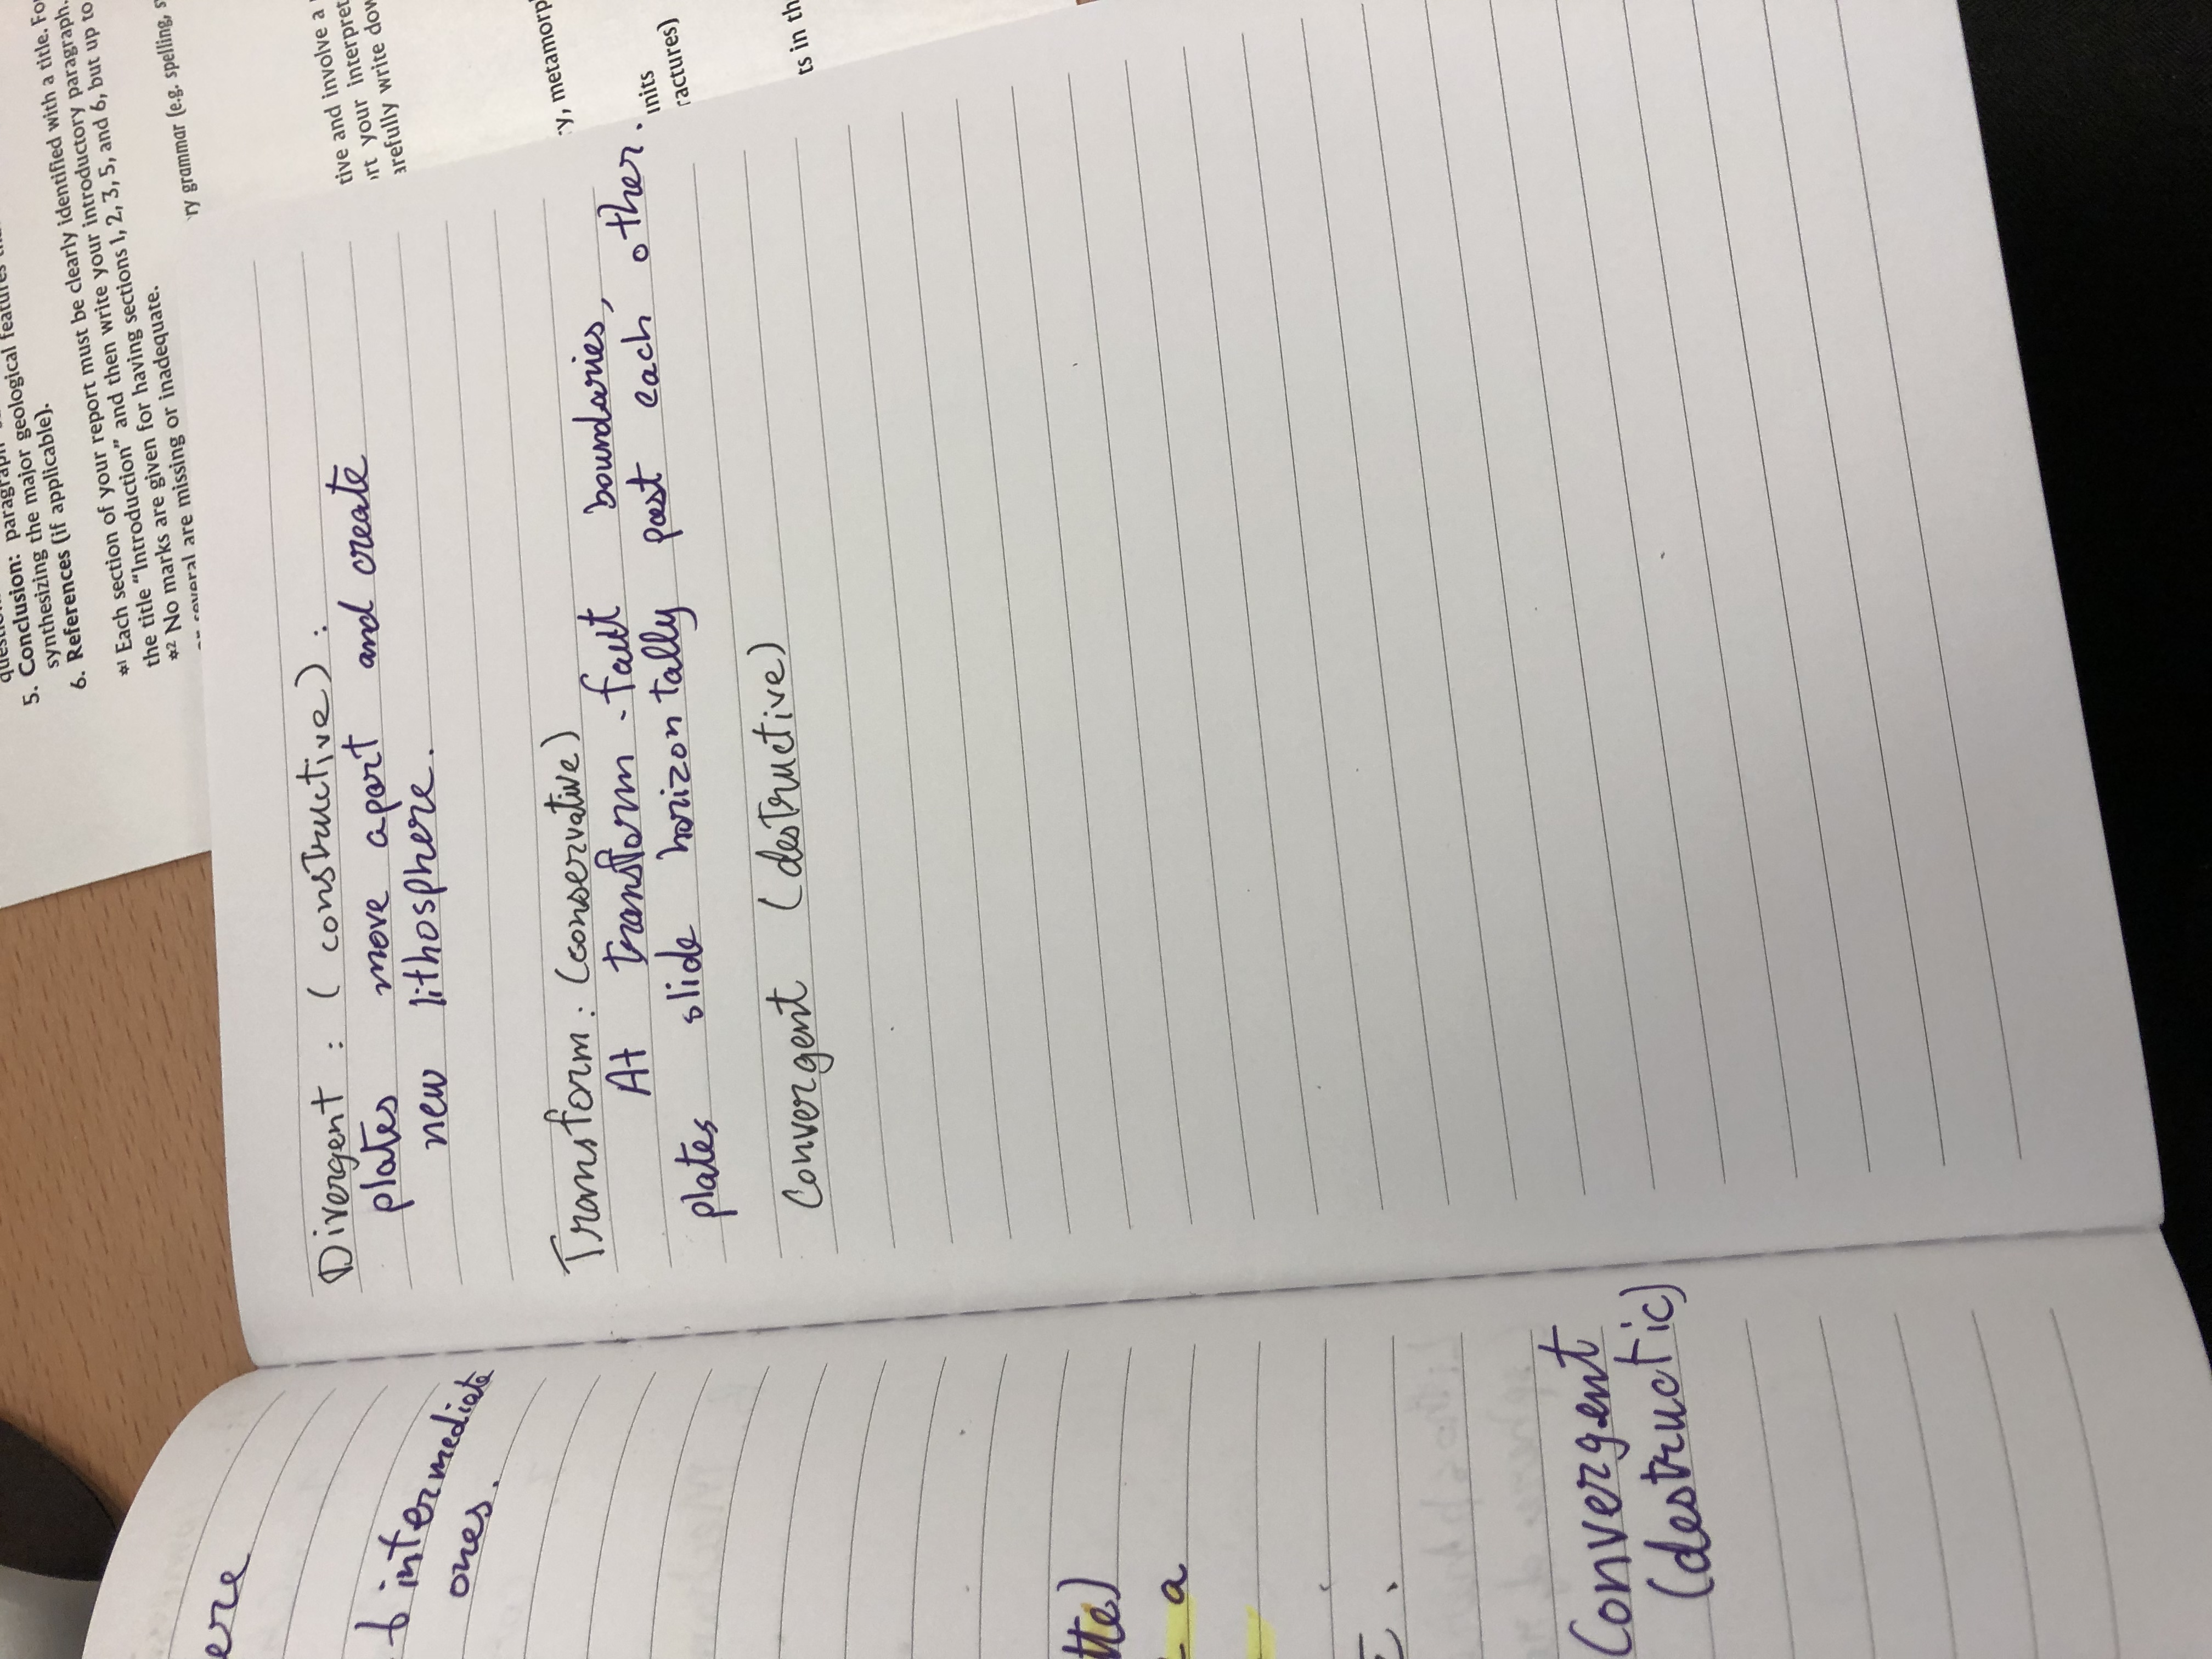 5. Conclusion: paragraph
synthesizing the major geological features
6. References (if applicable).
#1 Each section of your report must be clearly identified with a title. Fo
the title "Introduction" and then write your introductory paragraph.
#2 No marks are given for having sections 1, 2, 3, 5, and 6, but up to
or several are missing or inadequate.
ry grammar (e.g. spelling, s
tive and involve a
rt your interpret
arefully write dow
y, metamorp
units
ractures)
ts in th
Divergent : ( constructive) :
plates move apart and create
new lithosphere.
Transform : (conservative)
At transform - fault boundaries,
plates slide horizontally past each other.
Convergent (destructive)
ere
f intermediate
ones.
tte)
a
Convergent
(destructic)